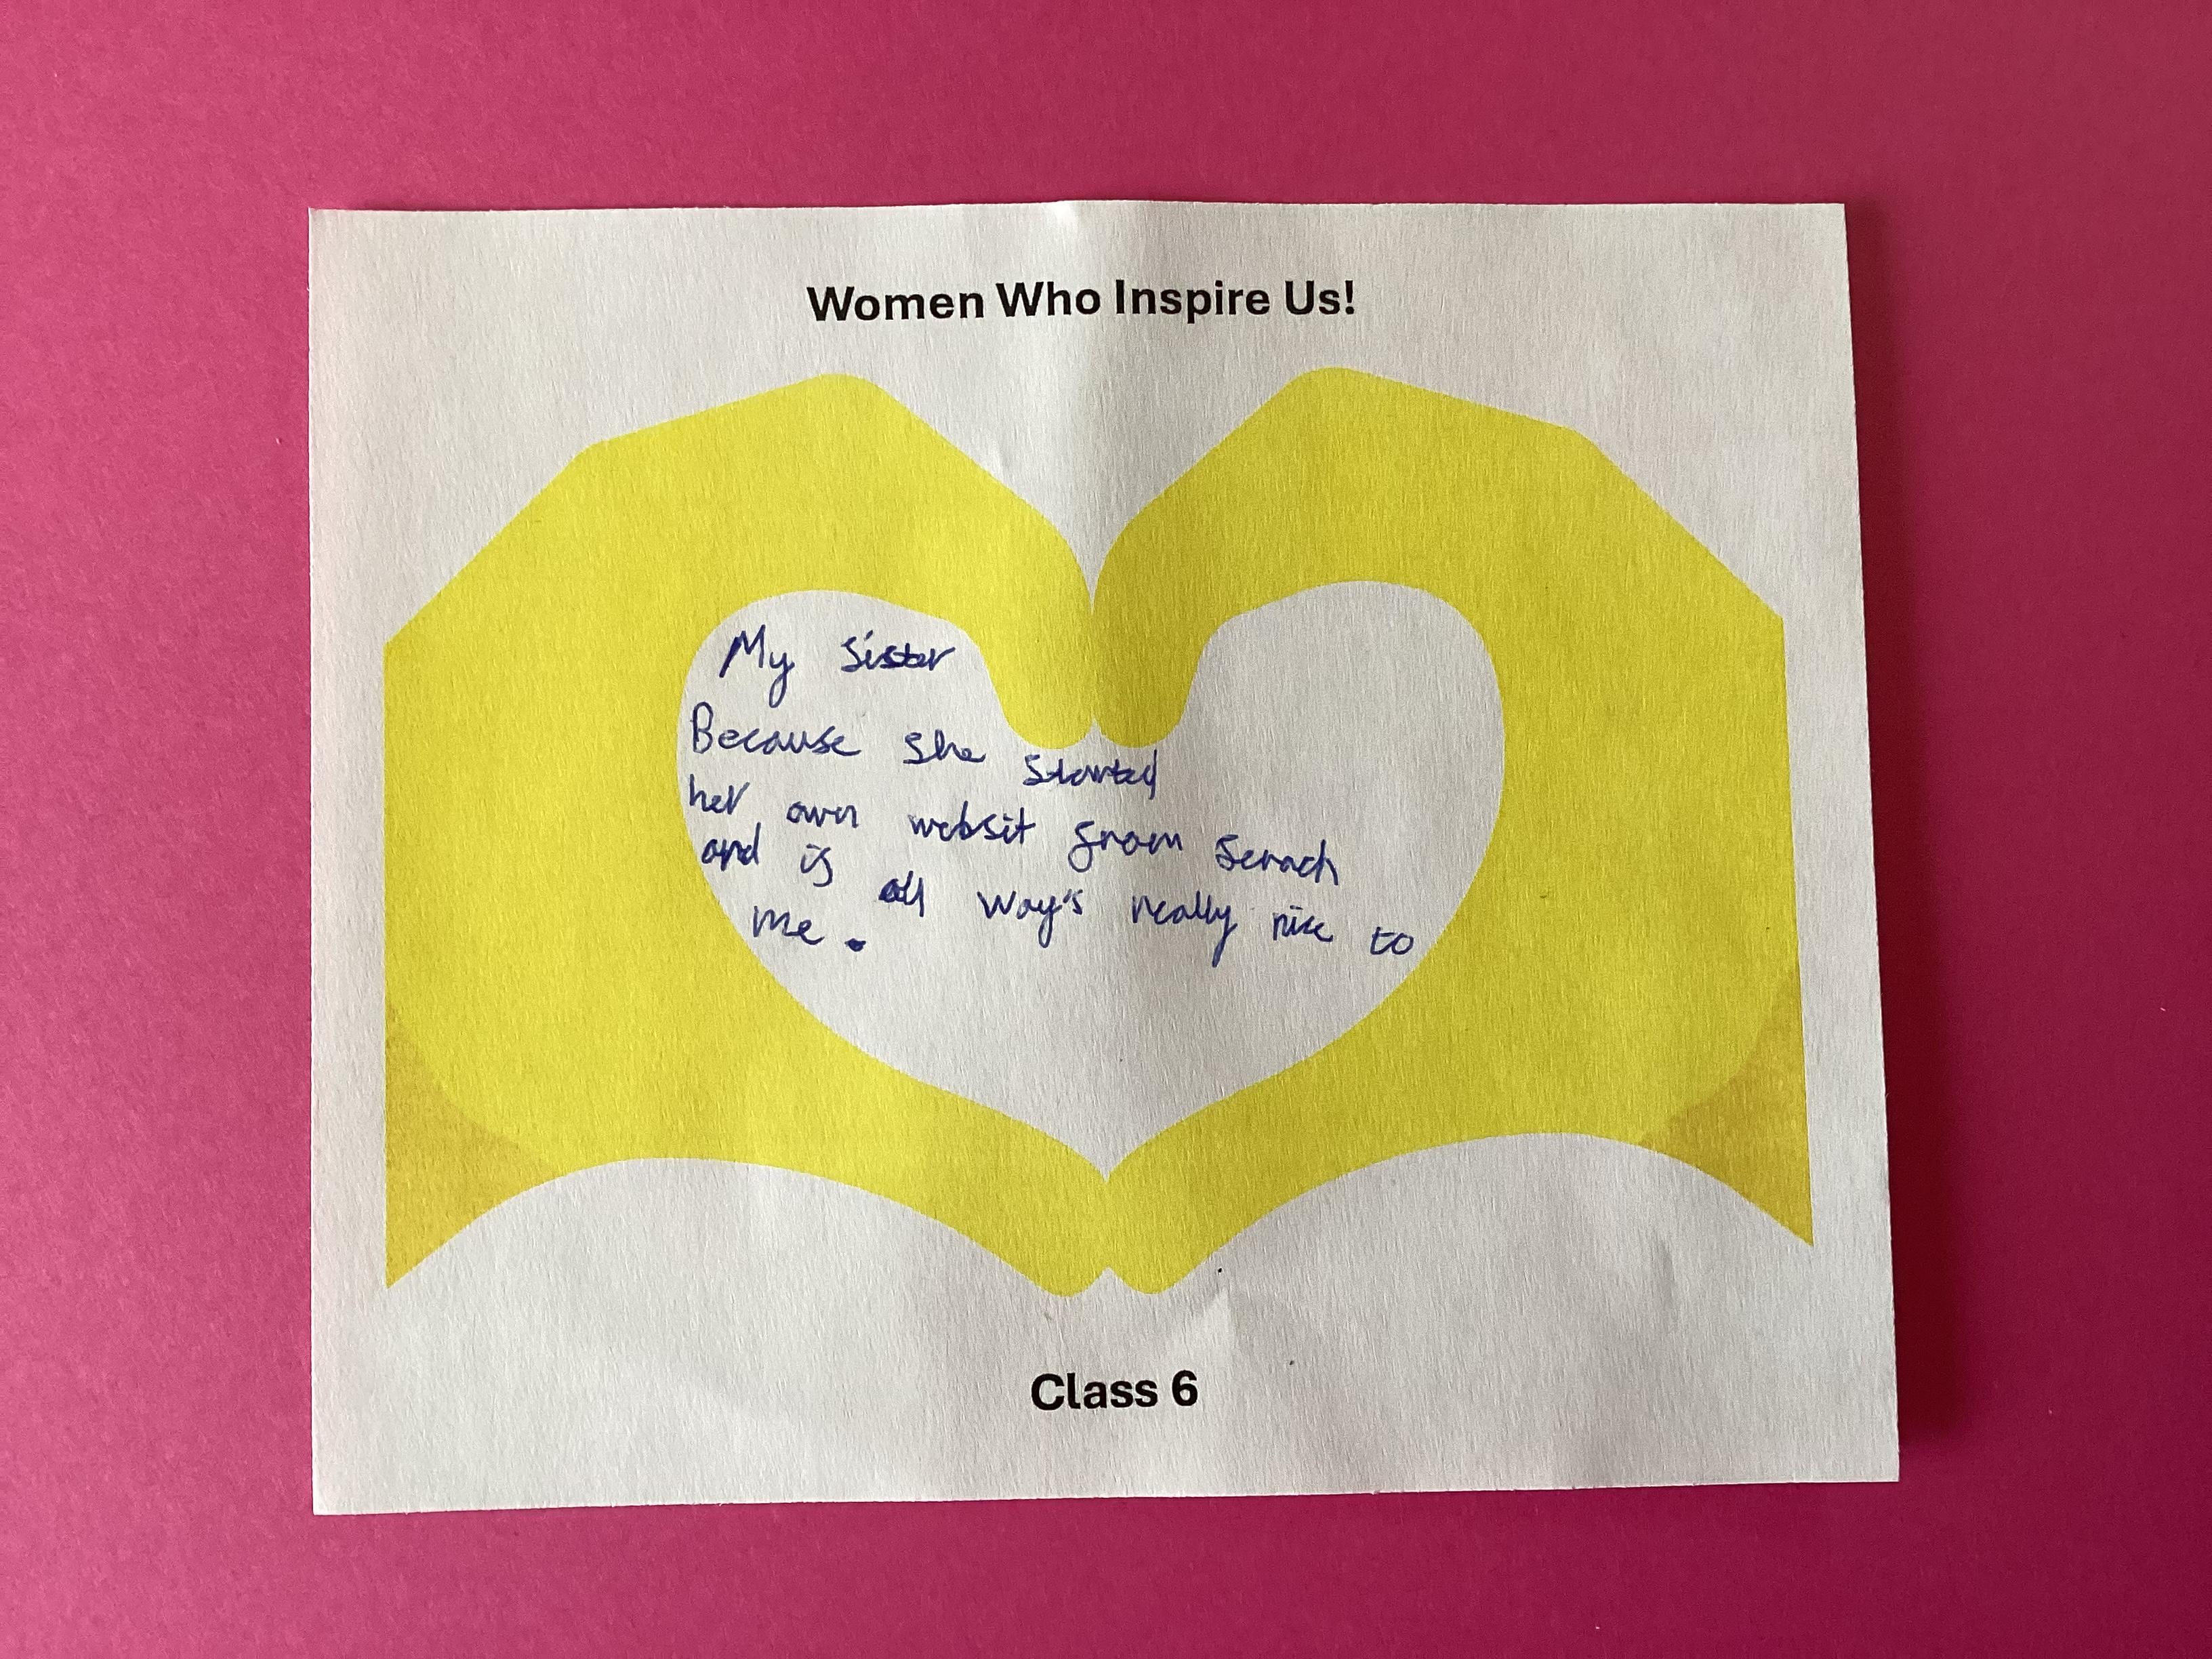 Women Who Inspire Us!
My sister
Because she started
her own websit from scrach
and is all way's really nice to
me.
Class 6